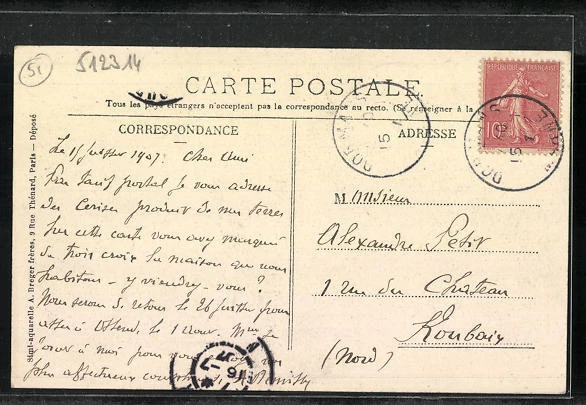 51
512314
CARTE POSTALE
Tous les pays étrangers n'acceptent pas la correspondance au recto. (Se renseigner à la
CORRESPONDANCE
ADRESSE
REPUBLIQUE FRANÇAISE
10
DORMANS
15
DORMANS
15
Simi-aquarelle A. Breger frères, 9 Rue Thénard, Paris — Déposé
Le 15 juillet 1907. Cher Ami
tarif postal je vous adresse
des Cerises produit de nos terres
Sur cette carte vous avez marqué
de trois croix la maison que nous
habitons - y viendrez-vous ?
Nous serons de retour le 26 juillet pour
à Ostende, le 1 Mme
à moi pour vous
plus affectueux
M. Monsieur
Alexandre Petit
1 rue du Chateau
Roubaix
(Nord)
16